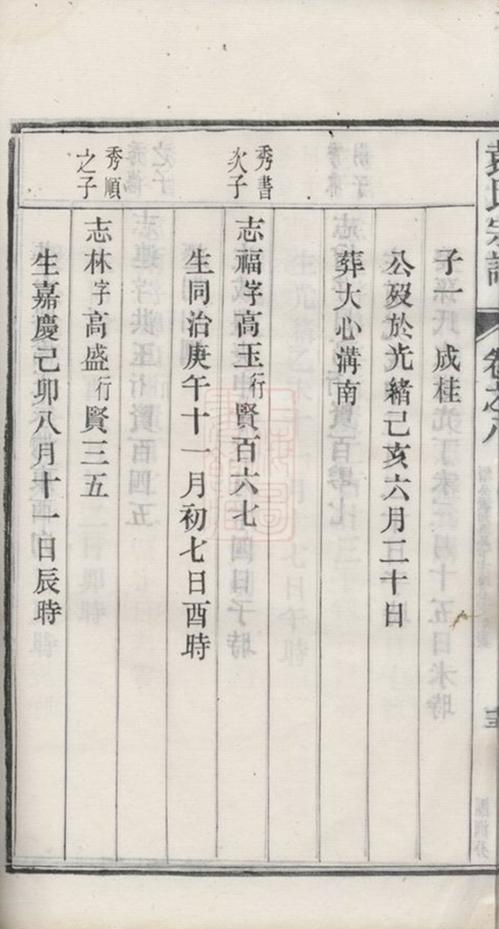 子一 成桂
公歿於光緒己亥六月二十日
葬大心溝南
秀書
次子
志福字高玉行賢百六七
生同治庚午十一月初七日酉時
秀順
之子
志林字高盛行賢三五
生嘉慶己卯八月十一日辰時